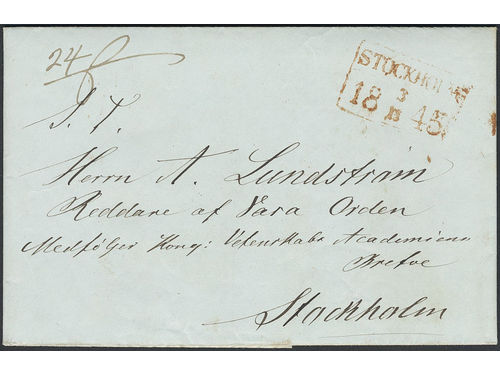 24
STOCKHOLM
3
18 B 45
S. T.
Herrn A. Lundström
Reddare af Vasa Orden
Medföljer Kong: Vetenskabs Academiens
Brefve
Stockholm